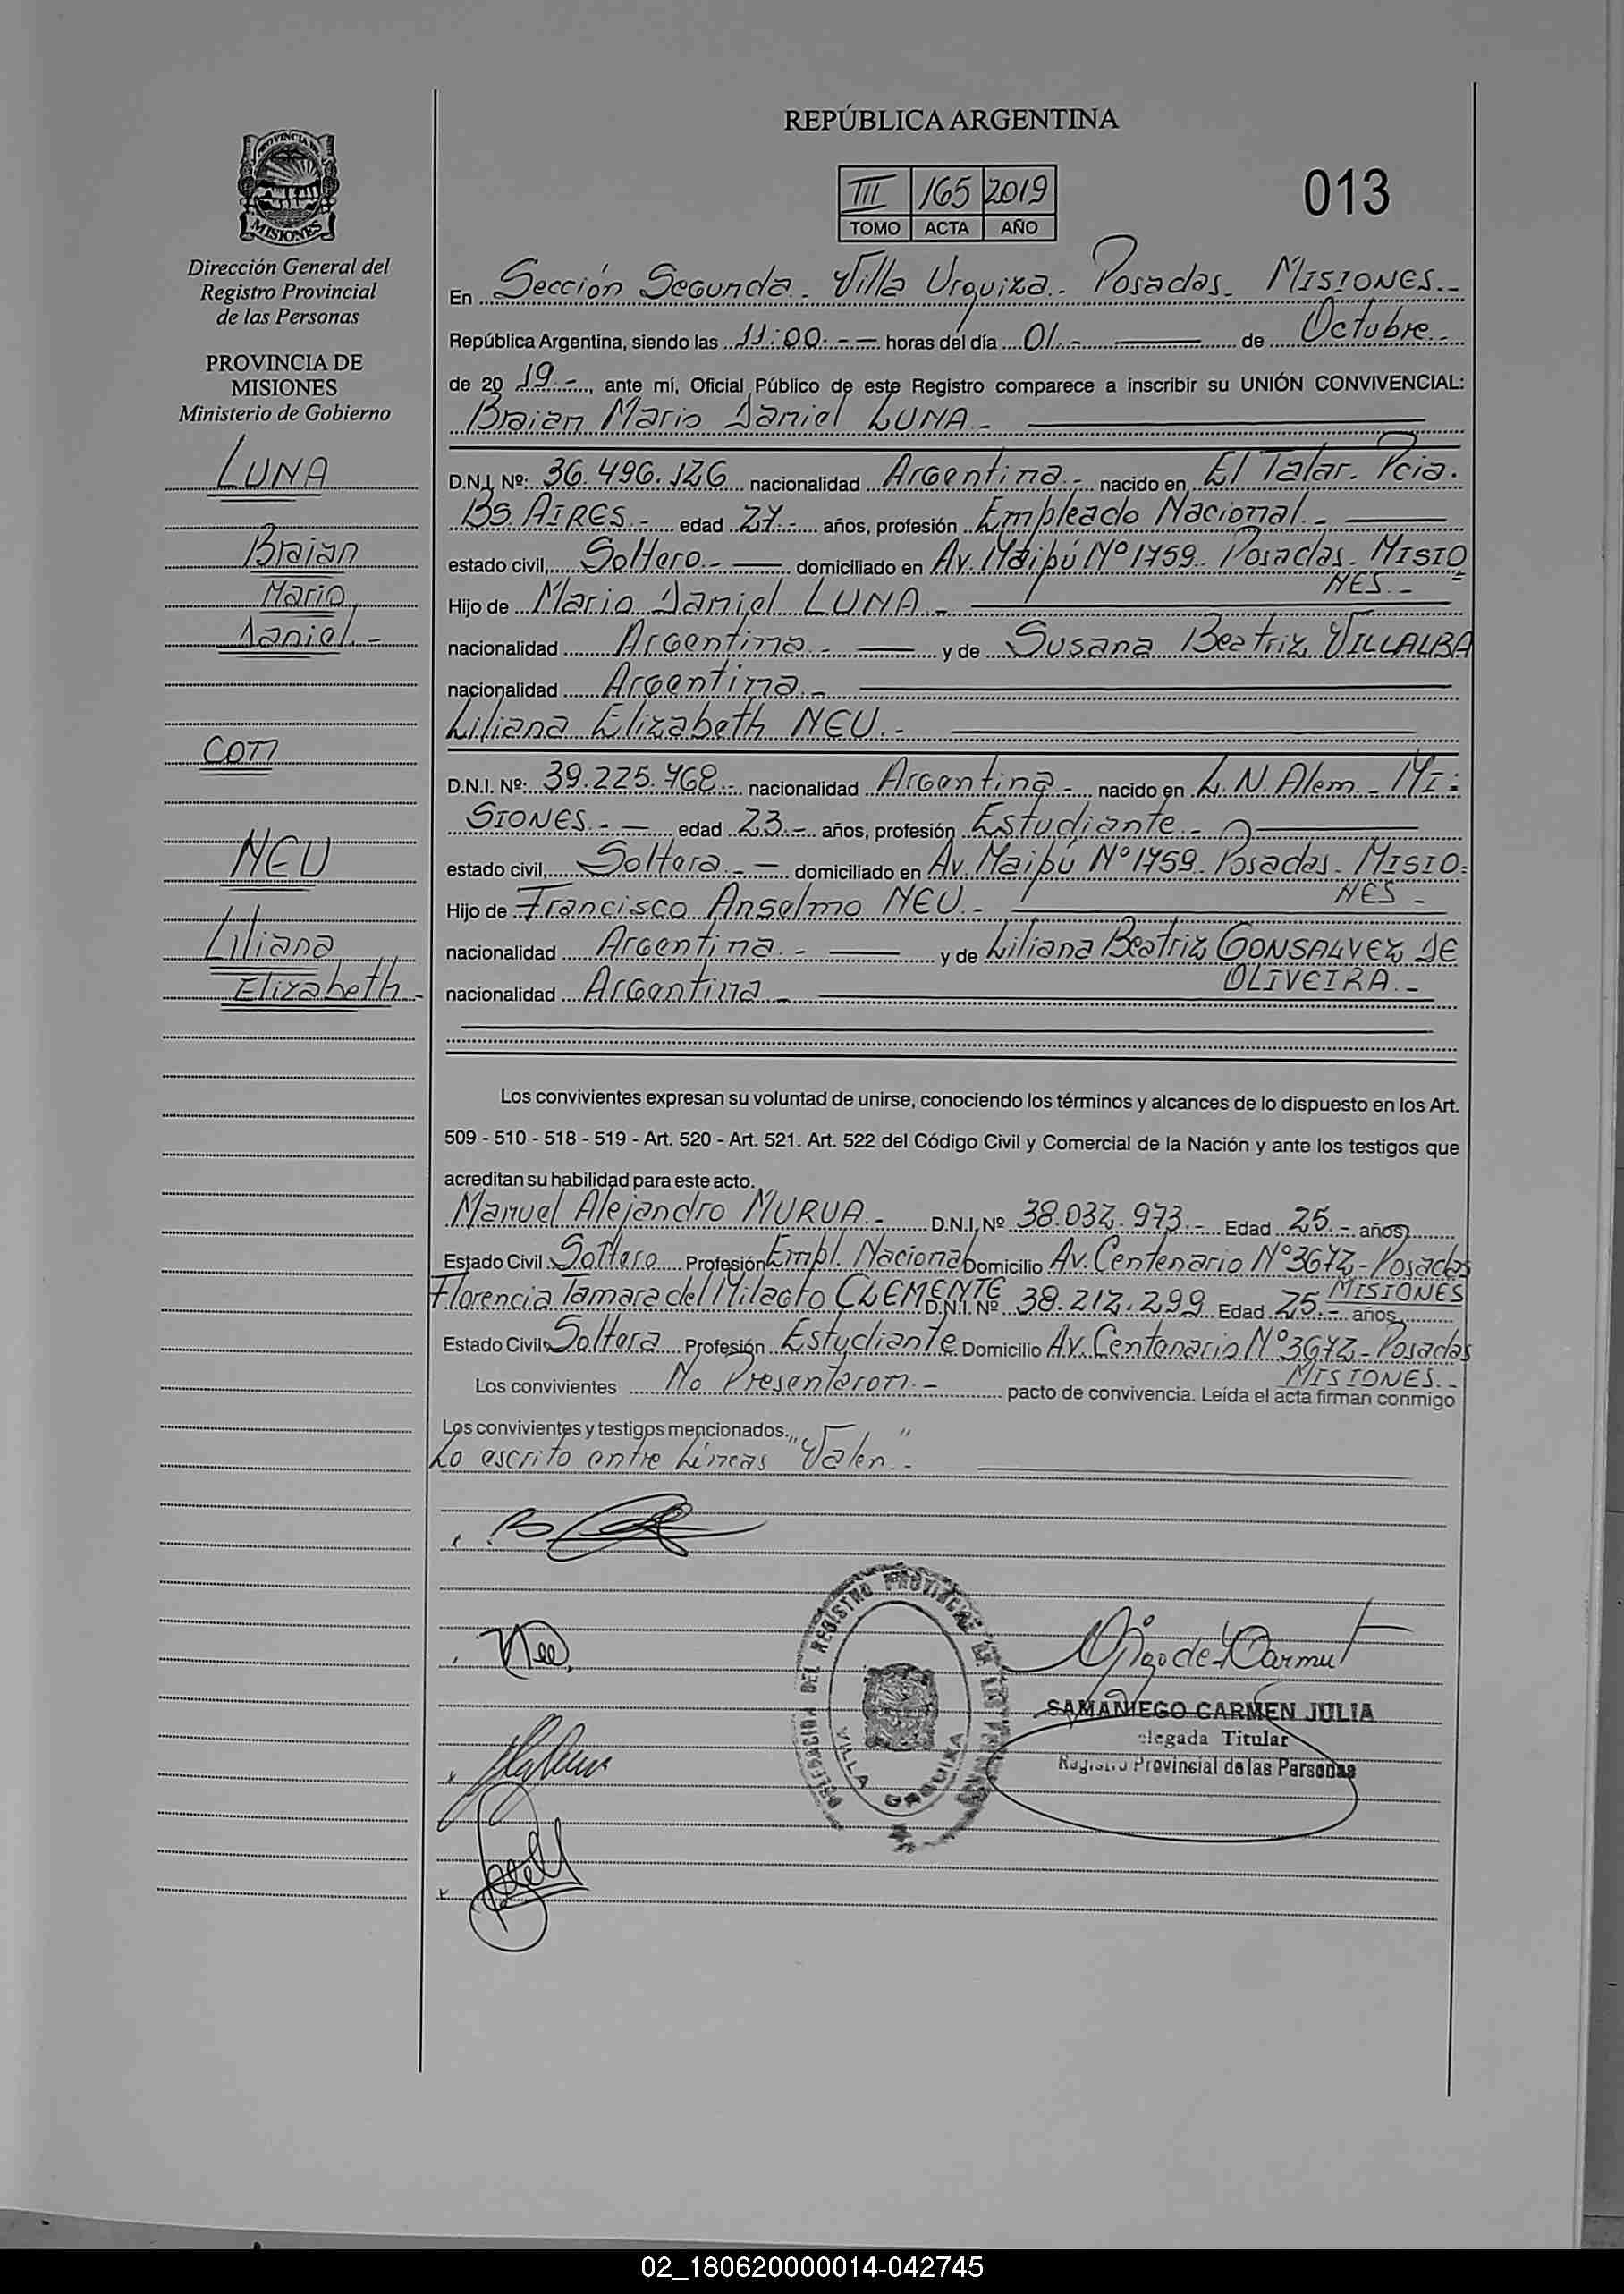 REPÚBLICA ARGENTINA
III 165 2019
TOMO ACTA AÑO
013
PROVINCIA DE
MISIONES
Dirección General del
Registro Provincial
de las Personas
PROVINCIA DE
MISIONES
Ministerio de Gobierno
LUNA
Braian
Mario
Daniel.-
con
NEU
Liliana
Elizabeth.-
En Sección Segunda.. Villa Urquiza.. Posadas. MISIONES.-
República Argentina, siendo las 11:00.-- horas del día 01.- de Octubre.-
de 20 19.-, ante mí, Oficial Público de este Registro comparece a inscribir su UNIÓN CONVIVENCIAL:
Braian Mario Daniel LUNA.-
D.N.I. Nº: 36.496.126 nacionalidad Argentina.- nacido en El Talar. Pcia.
BS. AIRES.- edad 27.- años, profesión Empleado Nacional.-
estado civil, Soltero.- domiciliado en Av. Maipú Nº 1759. Posadas. MISIO
NES.-
Hijo de Mario Daniel LUNA.-
nacionalidad Argentina.- y de Susana Beatriz VILLALBA
nacionalidad Argentina.-
Liliana Elizabeth NEU.-
D.N.I. Nº: 39.225.468.- nacionalidad Argentina.- nacido en L.N. Alem - MI:
SIONES.- edad 23.- años, profesión Estudiante.-
estado civil, Soltera.- domiciliado en Av. Maipú Nº 1759. Posadas. MISIO:
NES -
Hijo de Francisco Anselmo NEU.-
nacionalidad Argentina.- y de Liliana Beatriz GONSALVEZ DE
OLIVEIRA.-
nacionalidad Argentina.-
Los convivientes expresan su voluntad de unirse, conociendo los términos y alcances de lo dispuesto en los Art.
509 - 510 - 518 - 519 - Art. 520 - Art. 521. Art. 522 del Código Civil y Comercial de la Nación y ante los testigos que
acreditan su habilidad para este acto.
Manuel Alejandro MURUA.- D.N.I. Nº 38.037.973.- Edad 25.- años
Estado Civil Soltero Profesión Empl. Nacional Domicilio Av. Centenario Nº 3672 - Posadas
MISIONES
Florencia Tamara del Milagto CLEMENTE D.N.I. Nº 38.212.299 Edad 25.- años
Estado Civil Soltera Profesión Estudiante Domicilio Av. Centenario Nº 3672 - Posadas
MISIONES.-
Los convivientes No Presentaron.- pacto de convivencia. Leída el acta firman conmigo
Los convivientes y testigos mencionados.
Lo escrito entre Líneas "Valen".-
DELEGACION DEL REGISTRO PROVINCIAL DE LAS PERSONAS
VILLA URQUIZA
SAMANIEGO CARMEN JULIA
elegada Titular
Registro Provincial de las Personas
02_180620000014-042745